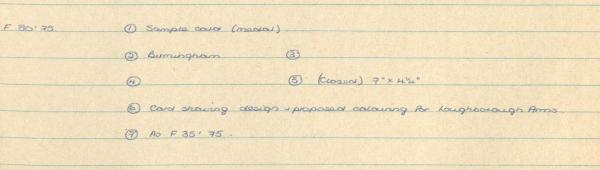 F 30'75. ① Sample card (menu)
② Birmingham ③
④ ⑤ (Closed) 7" x 4¼"
⑥ Card showing design + proposed colouring for Loughborough Arms.
⑦ As F 35'75.